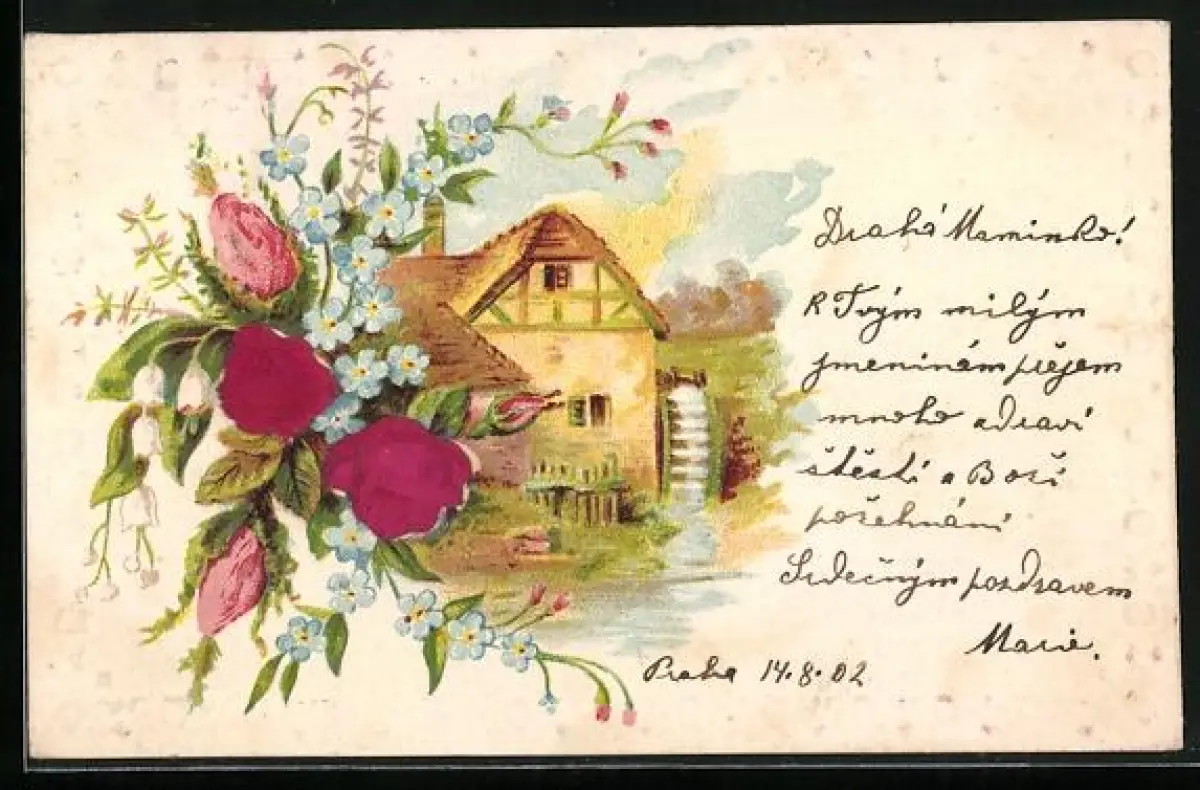 Drahá Maminko!
K Tvým milým
jmeninám přejem
mnoho zdraví
štěstí a Boží
požehnání
Srdečným pozdravem
Marie.
Praha 14.8.02